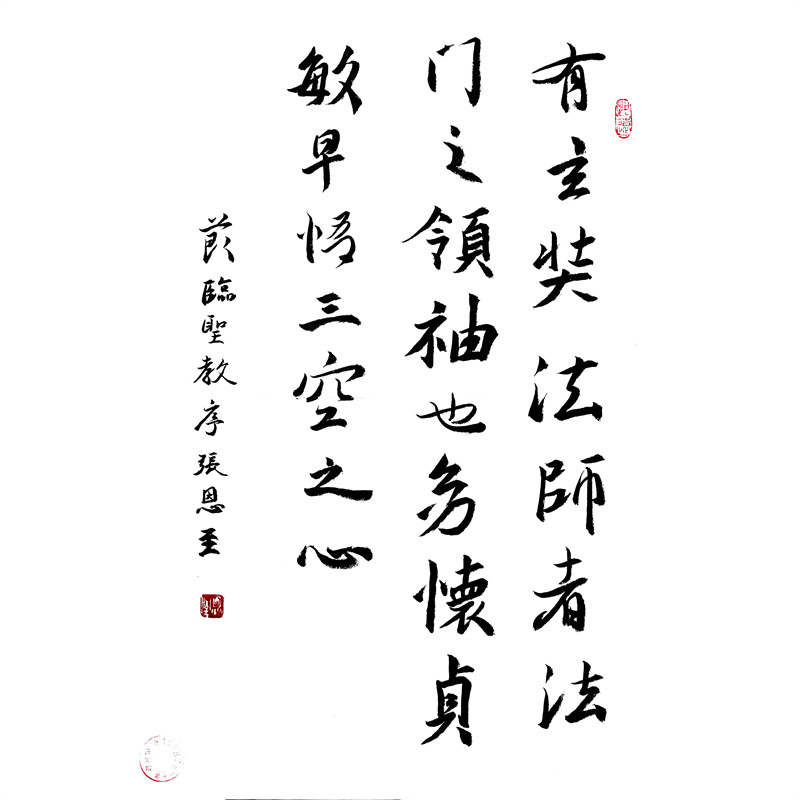 有玄奘法師者法
门之領袖也幼懷貞
敏早悟三空之心
節臨聖教序張恩至